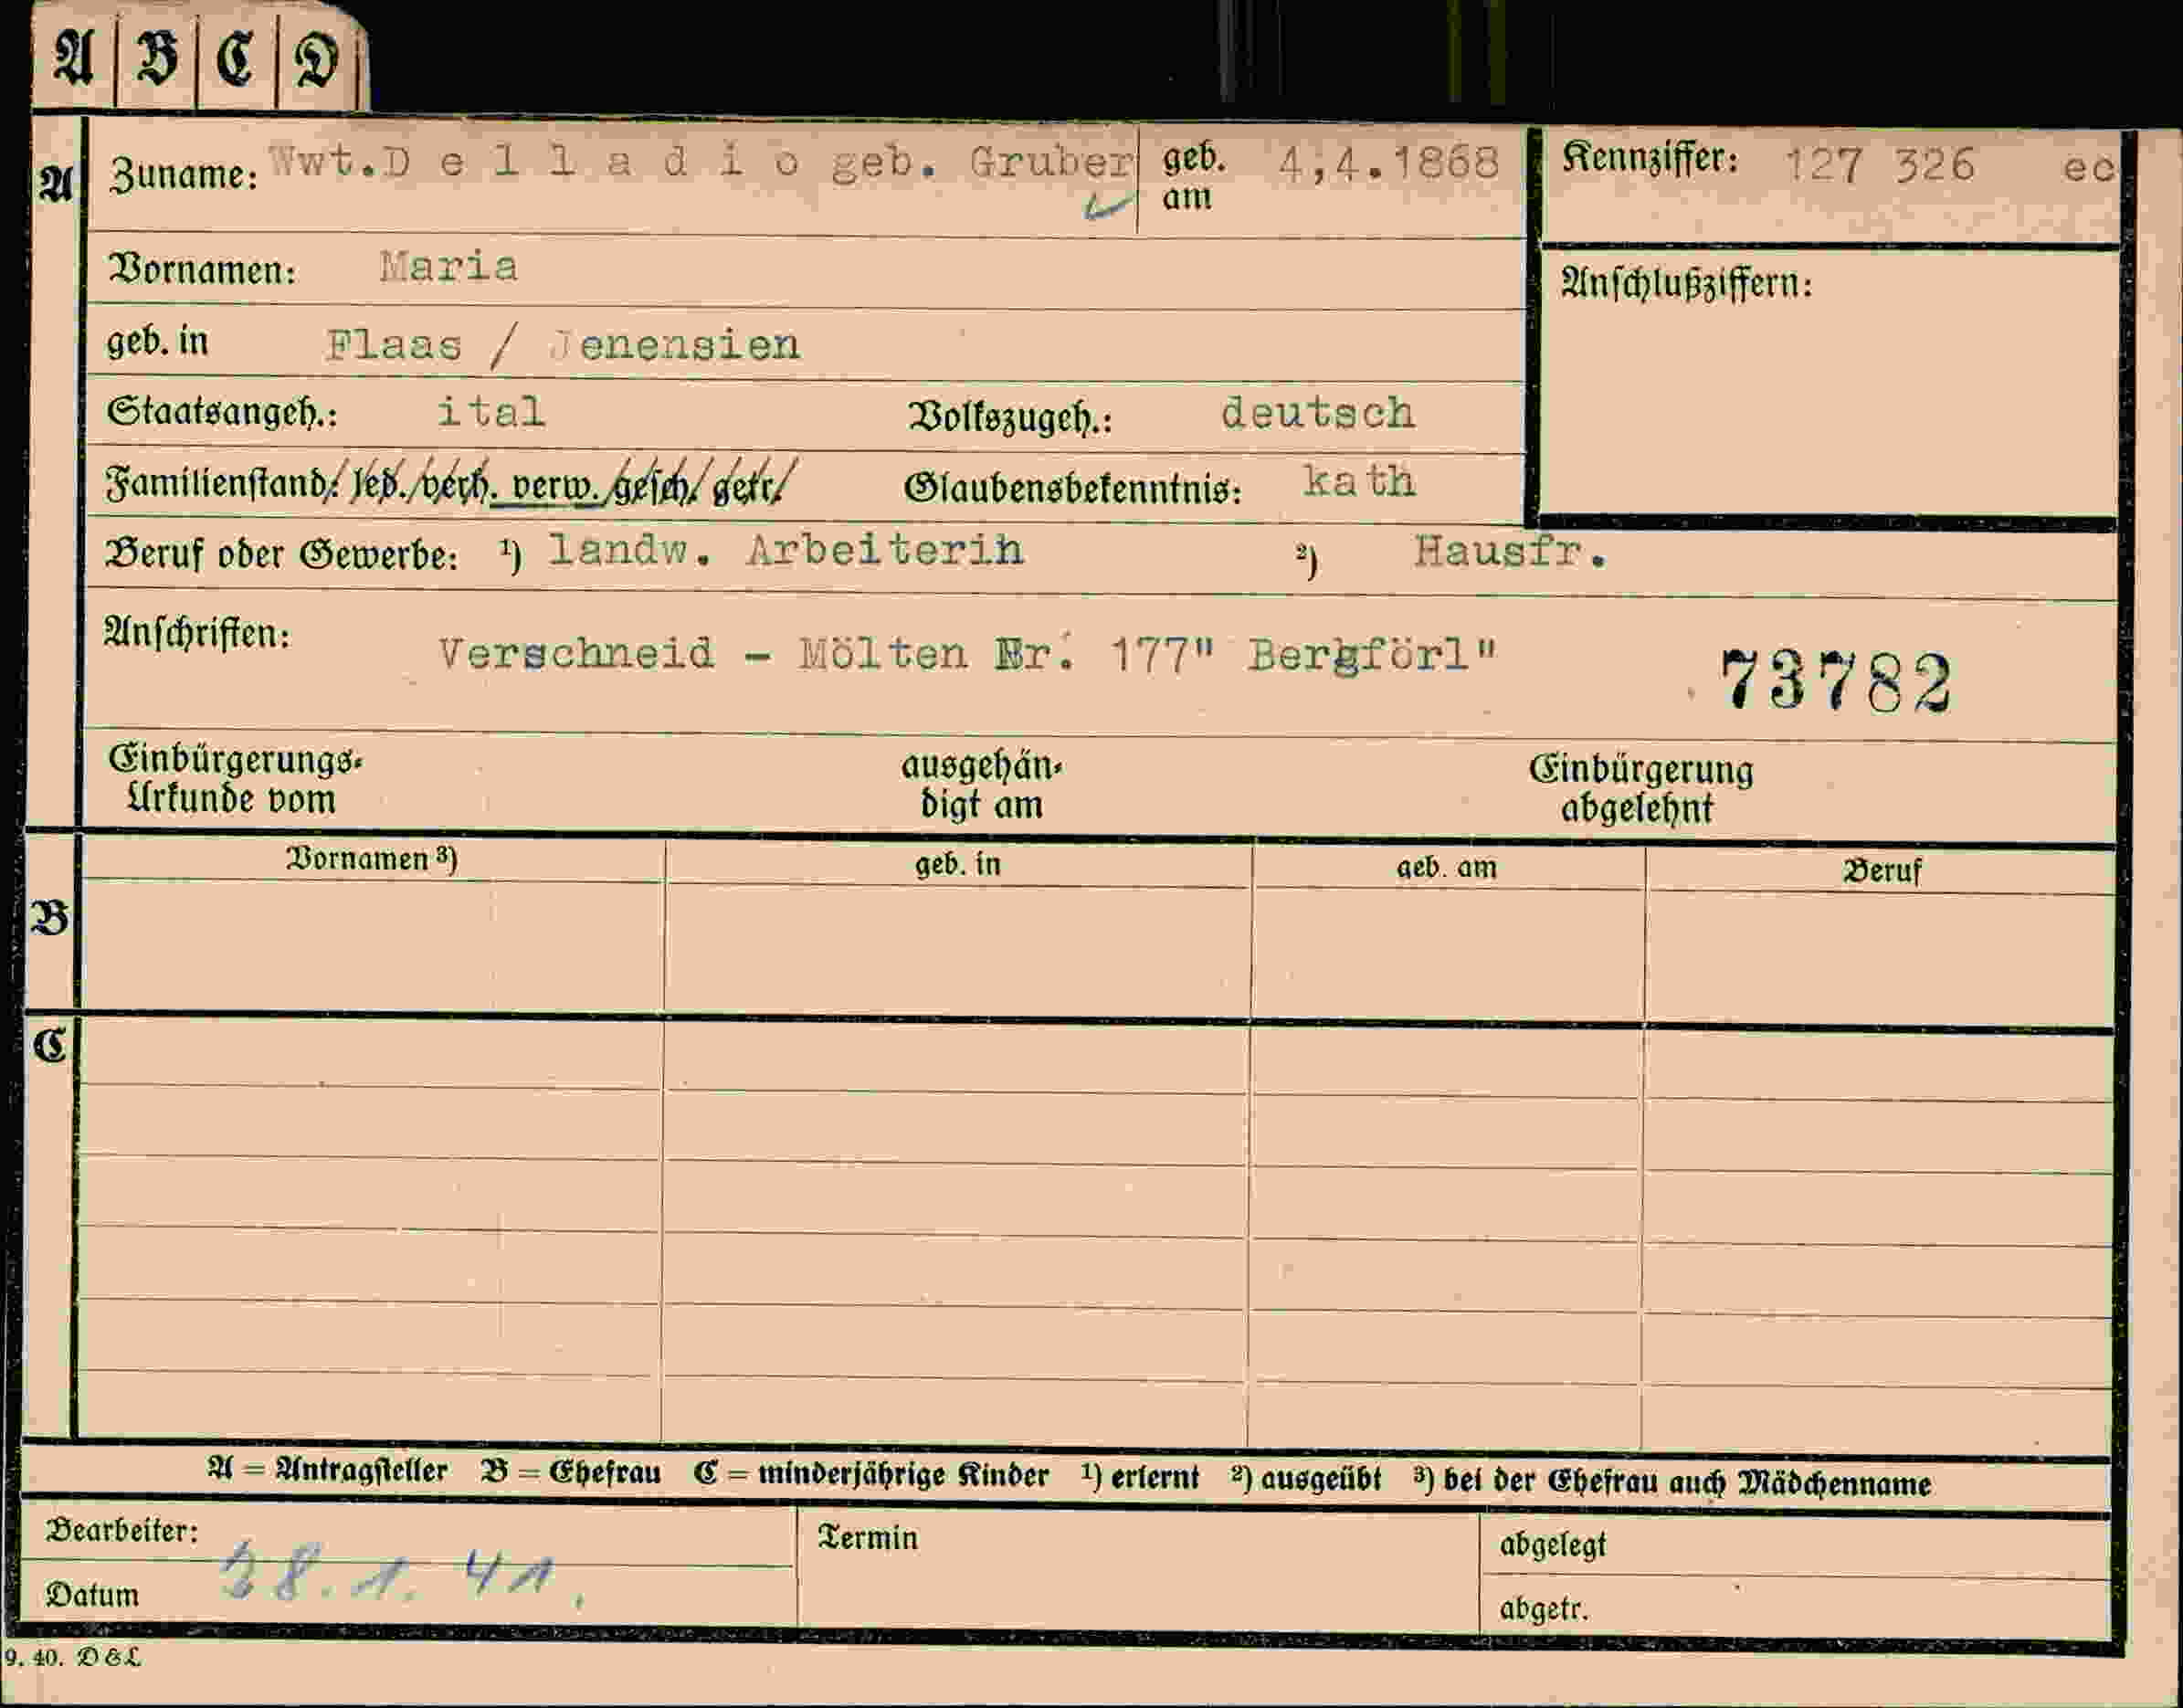 A B C D
A Zuname: Wwt.D e l l a d i o geb. Gruber geb. am 4,4.1868 Kennziffer: 127 326 ec
Vornamen: Maria
Anschlußziffern:
geb. in Flaas / Jenensien
Staatsangeh.: ital Volkszugeh.: deutsch
Familienstand: led. verh. verw. gesch. getr. Glaubensbekenntnis: kath
Beruf oder Gewerbe: 1) landw. Arbeiterin 2) Hausfr.
Anschriften: Verschneid - Mölten Nr. 177" Bergförl" 73782
Einbürgerungs-
Urkunde vom
ausgehän-
digt am
Einbürgerung
abgelehnt
Vornamen 3) geb. in geb. am Beruf
B
C
A = Antragsteller B = Ehefrau C = minderjährige Kinder 1) erlernt 2) ausgeübt 3) bei der Ehefrau auch Mädchenname
Bearbeiter: Termin abgelegt
Datum 28.1.41. abgetr.
9. 40. D & L